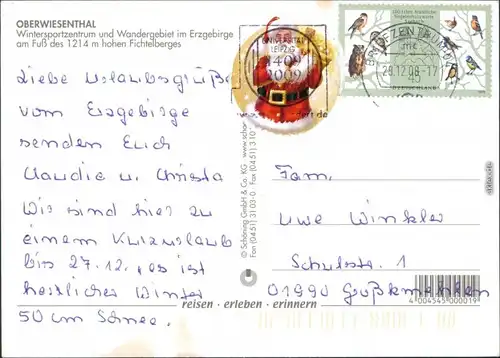 OBERWIESENTHAL
Wintersportzentrum und Wandergebiet im Erzgebirge
am Fuß des 1214 m hohen Fichtelberges
Liebe Urlaubsgrüße
vom Erzgebirge
senden Euch
Claudia u. Christa
Wir sind hier zu
einem Kurzurlaub
bis 27.12., es ist
herrlicher Winter
50 cm Schnee.
UNIVERSITÄT
LEIPZIG
1409
2009
BRIEFZENTRUM
29.12.08-17
© Schöning GmbH & Co. KG
Fax (0451)
Fam.
Uwe Winkler
Schulstr. 1
01990 Großkmehlen
4 004545 000019
reisen · erleben · erinnern